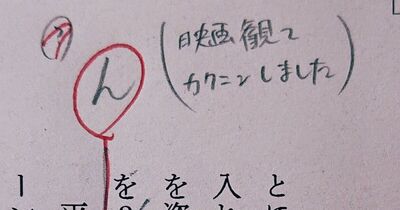 ん
(映画観て
カクニンしました)
と
入
を
を
ー